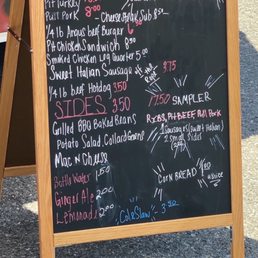 Pit Turkey
Pull Pork 8.00
Cheese Steak Sub 8.50
1/4 lb Angus beef Burger 6.50
Pit Chicken Sandwich 8.50
Smoked Chicken Leg Quarter 5.00
Sweet Italian Sausage 3.75
1/4 lb beef Hotdog 3.50
SIDES 3.50
17.50 SAMPLER
Grilled BBQ Baked Beans
Ribs, Pit BEEF Pull Pork
Potato Salad Collard Greens
1 Sausage (Sweet Italian)
2 Small Sides
Mac N Cheese
CORN BREAD
Bottle Water 1.50
Ginger Ale 2.00
Lemonade 2.00
Cole Slaw - 3.50